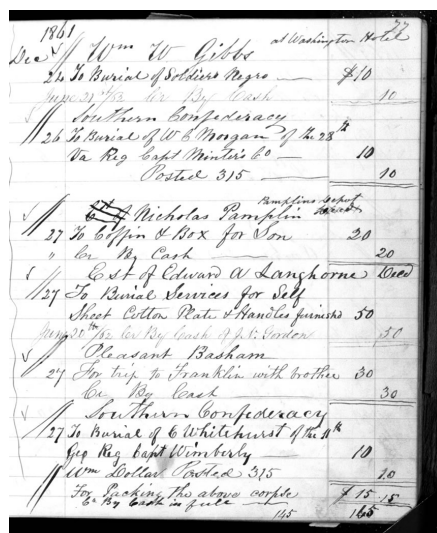 77
1861 at Washington Hotel
Dec Wm W Gibbs
24 To Burial of Soldiers Negro $10
June 21st /62 Cr By Cash 10
Southern Confederacy
26 To Burial of W C Morgan of the 28th
Va Reg Capt Minter's Co 10
Posted 315 10
Pamplins Depot
Nicholas Pamplin
27 To Coffin & Box for Son 20
" Cr By Cash 20
Est of Edward A Langhorne Decd
27 To Burial Services for Self
Sheet Cotton Plate & Handles furnished 50
June 20th /62 Cr By Cash of J. Gordon 50
Pleasant Basham
27 For trip to Franklin with brother 30
Cr By Cash 30
Southern Confederacy
27 To Burial of C Whitehurst of the 11th
Geo Reg Capt Wimberly 10
Wm Dollar Posted 315 10
For Packing the above corpse $15 15
Cr By Cash in full
145 165